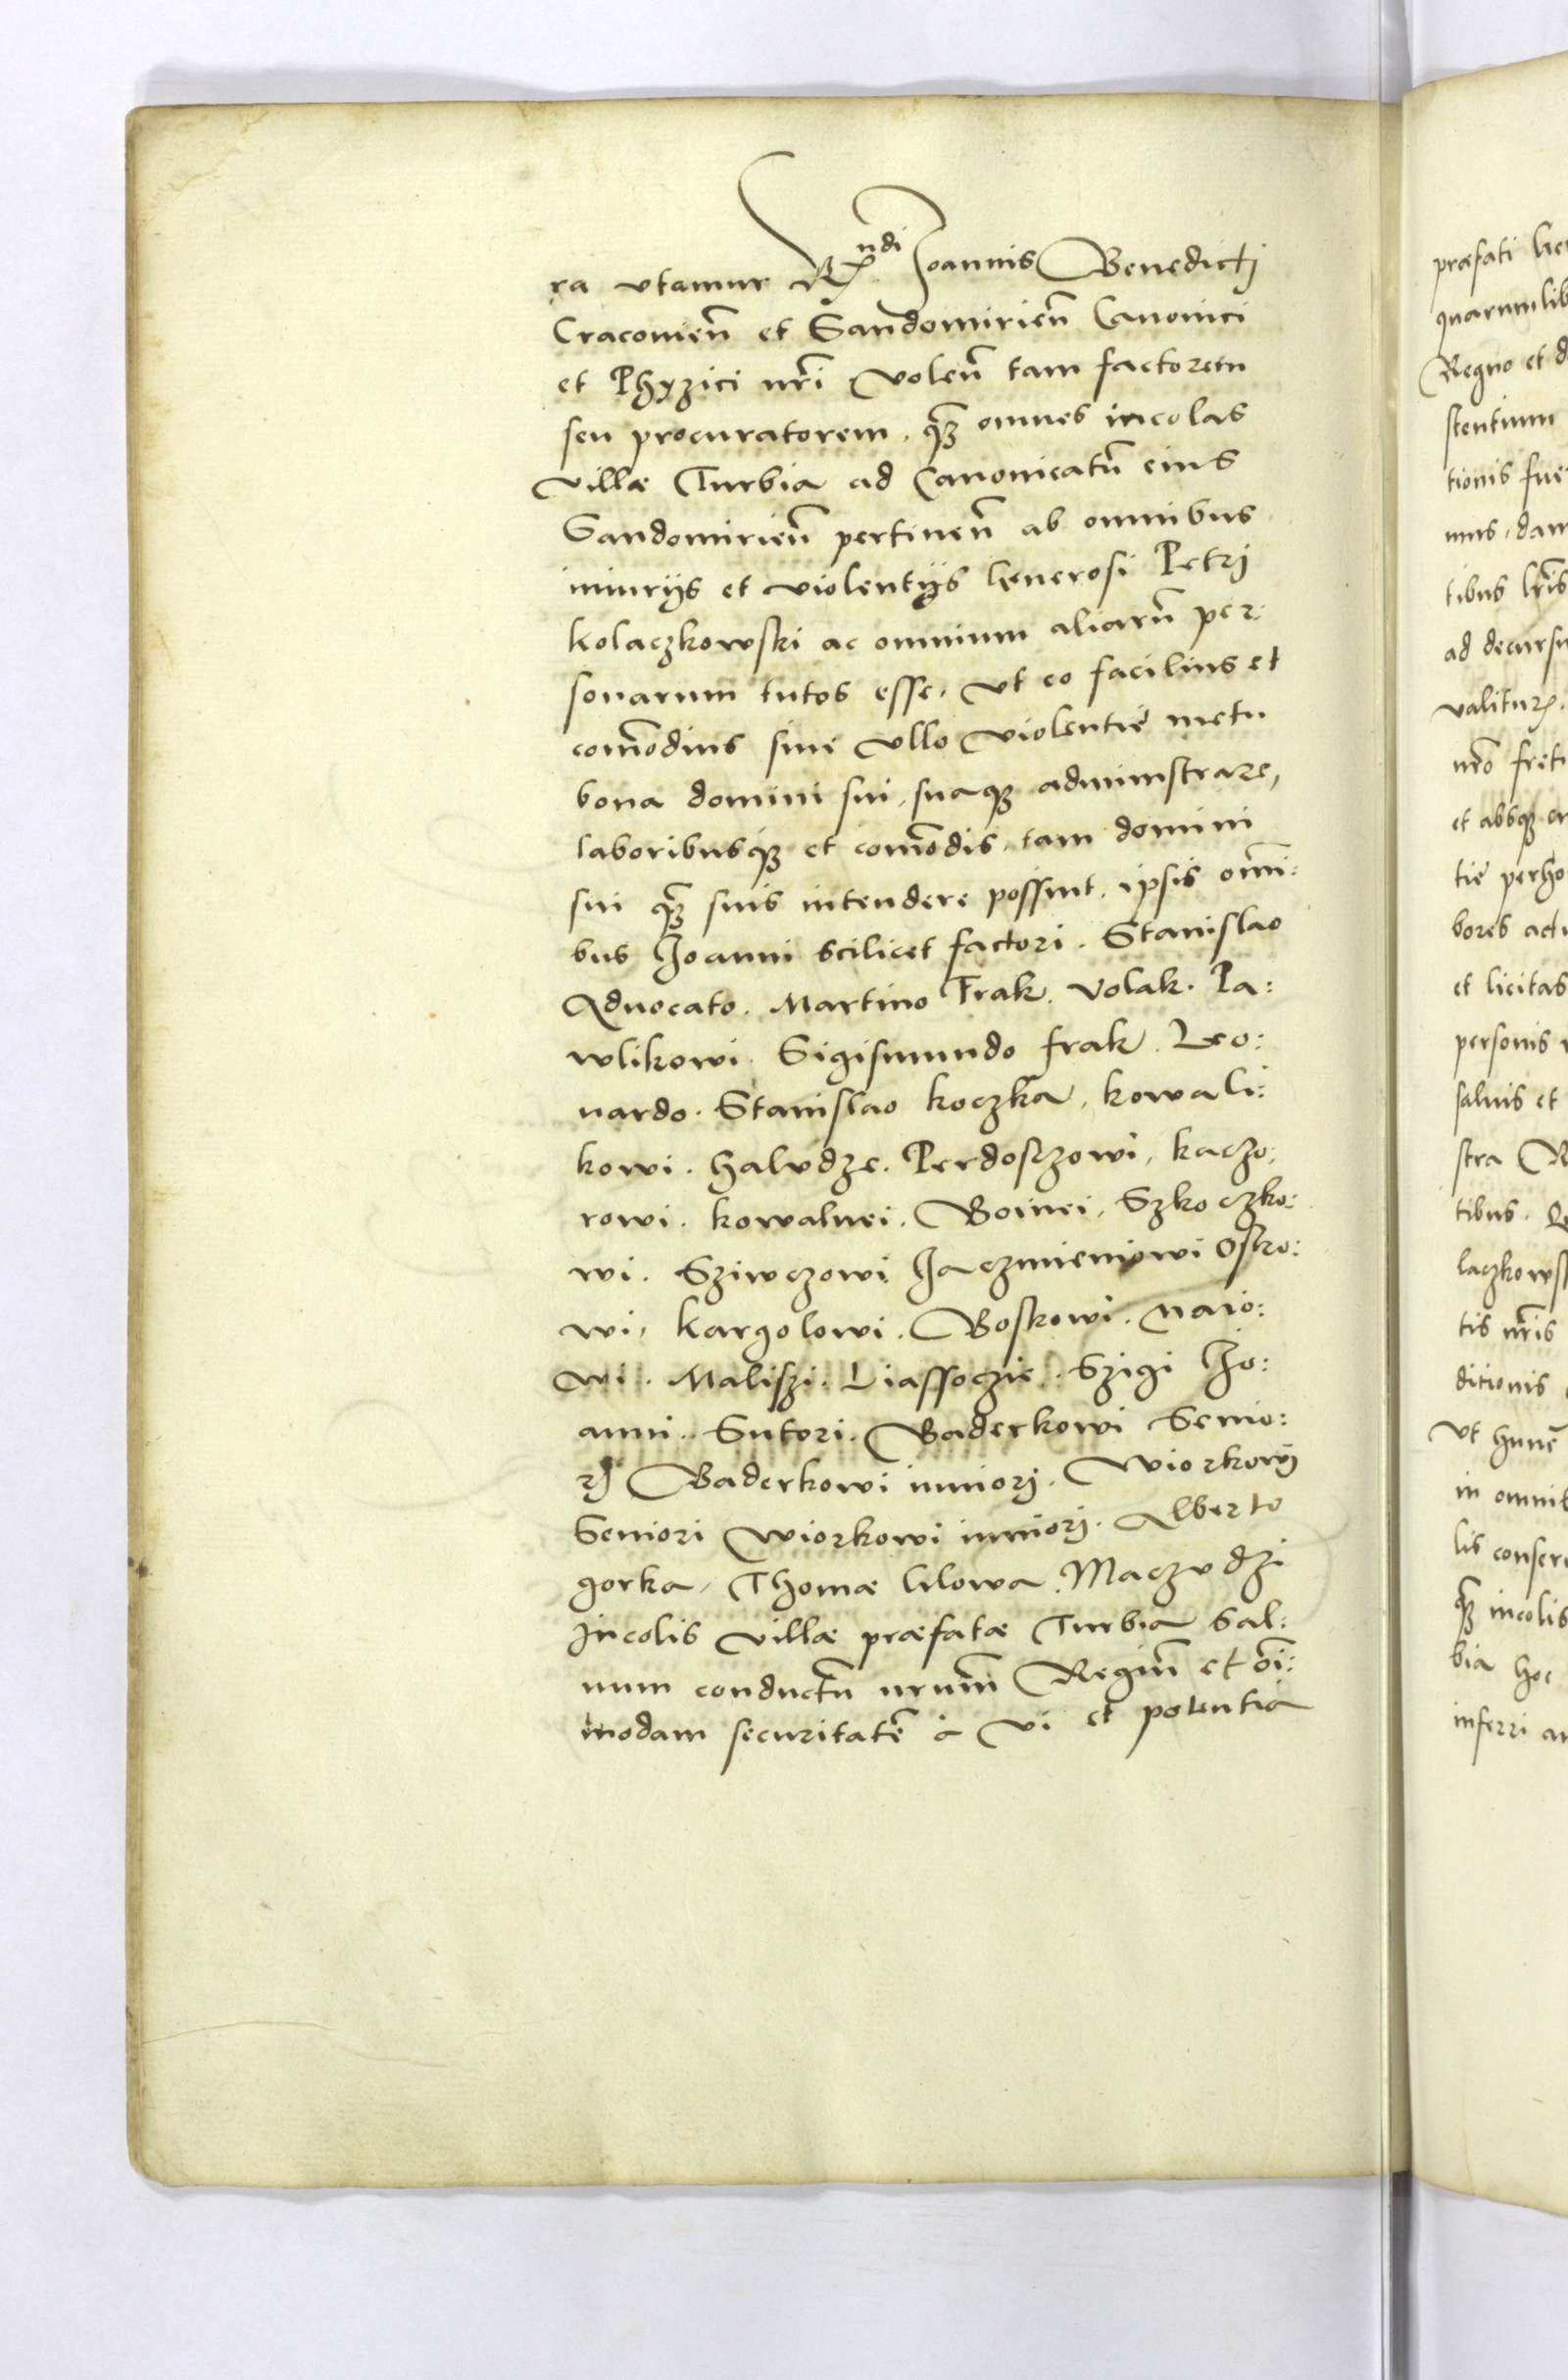 ra vtamur R<sup>ndi</sup> Joannis Benedictj
Cracovien̄ et Sandomirien̄ Canonici
et Phyzici nr̄i volen̄ tam factorem
seu procuratorem, quā omnes incolas
villæ Turbia ad Canonicatū eius
Sandomirien̄ pertinen̄ ab omnibus
iniurijs et violentijs Generosi Petrj
Kolaczkowski ac omnium aliarū per:
sonarum tutos esse, vt eo facilius et
com̄odius sine vllo violentię metu
bona domini sui, suaq̃ administrare,
laboribusq̃ et com̄odis, tam domini
sui quā suis intendere possint, ipsis om̄i:
bus Joanni scilicet factori. Stanislao
Advocato. Martino Frak. Volak. Pa:
wlikowi. Sigismundo frak. Leo:
nardo. Stanislao koczka, kowali:
kowi. Halvdze. Perdoszowi, kaczo:
rowi. kowalnei. Boinei, Szkoczko:
wi. Sziwczowi Jaczmieniowi Osko:
wi, kargolowi. Boskowi. Naio:
wi. Maliszi. Liassoczie. Szigi Jo:
anni. Sutori. Baderkowi Senio:
rj Baderkowi iuniorj. Wiorkowi
Seniori Wiorkowi iuniorj. Alberto
gorka, Thomæ lilowa. Maczvdzi
Incolis villæ præfatæ Turbia Sal:
uum conductū nrum̄ Regiū et oī:
modam securitatē à vi et potentia
præfati
Regno et
stentium
tionis
ad
et licitas
personis
saluis et
stra
tibus.
ditionis
in
bia hoc
inferri